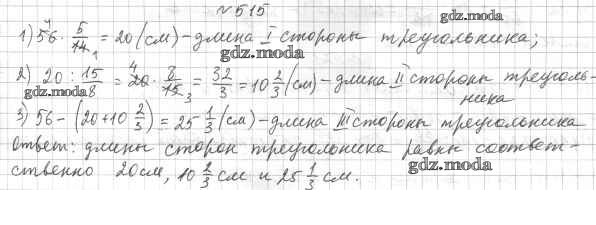 № 515
gdz.moda
1) 56 · 5/14 = 20 (см) – длина I стороны треугольника;
gdz.moda
2) 20 : 15/8 = 20 · 8/15 = 32/3 = 10 2/3 (см) – длина II стороны треуголь-
gdz.moda
ника
3) 56 – (20 + 10 2/3) = 25 1/3 (см) – длина III стороны треугольника
Ответ: длины сторон треугольника равны соответ-
gdz.moda
ственно 20 см, 10 2/3 см и 25 1/3 см.